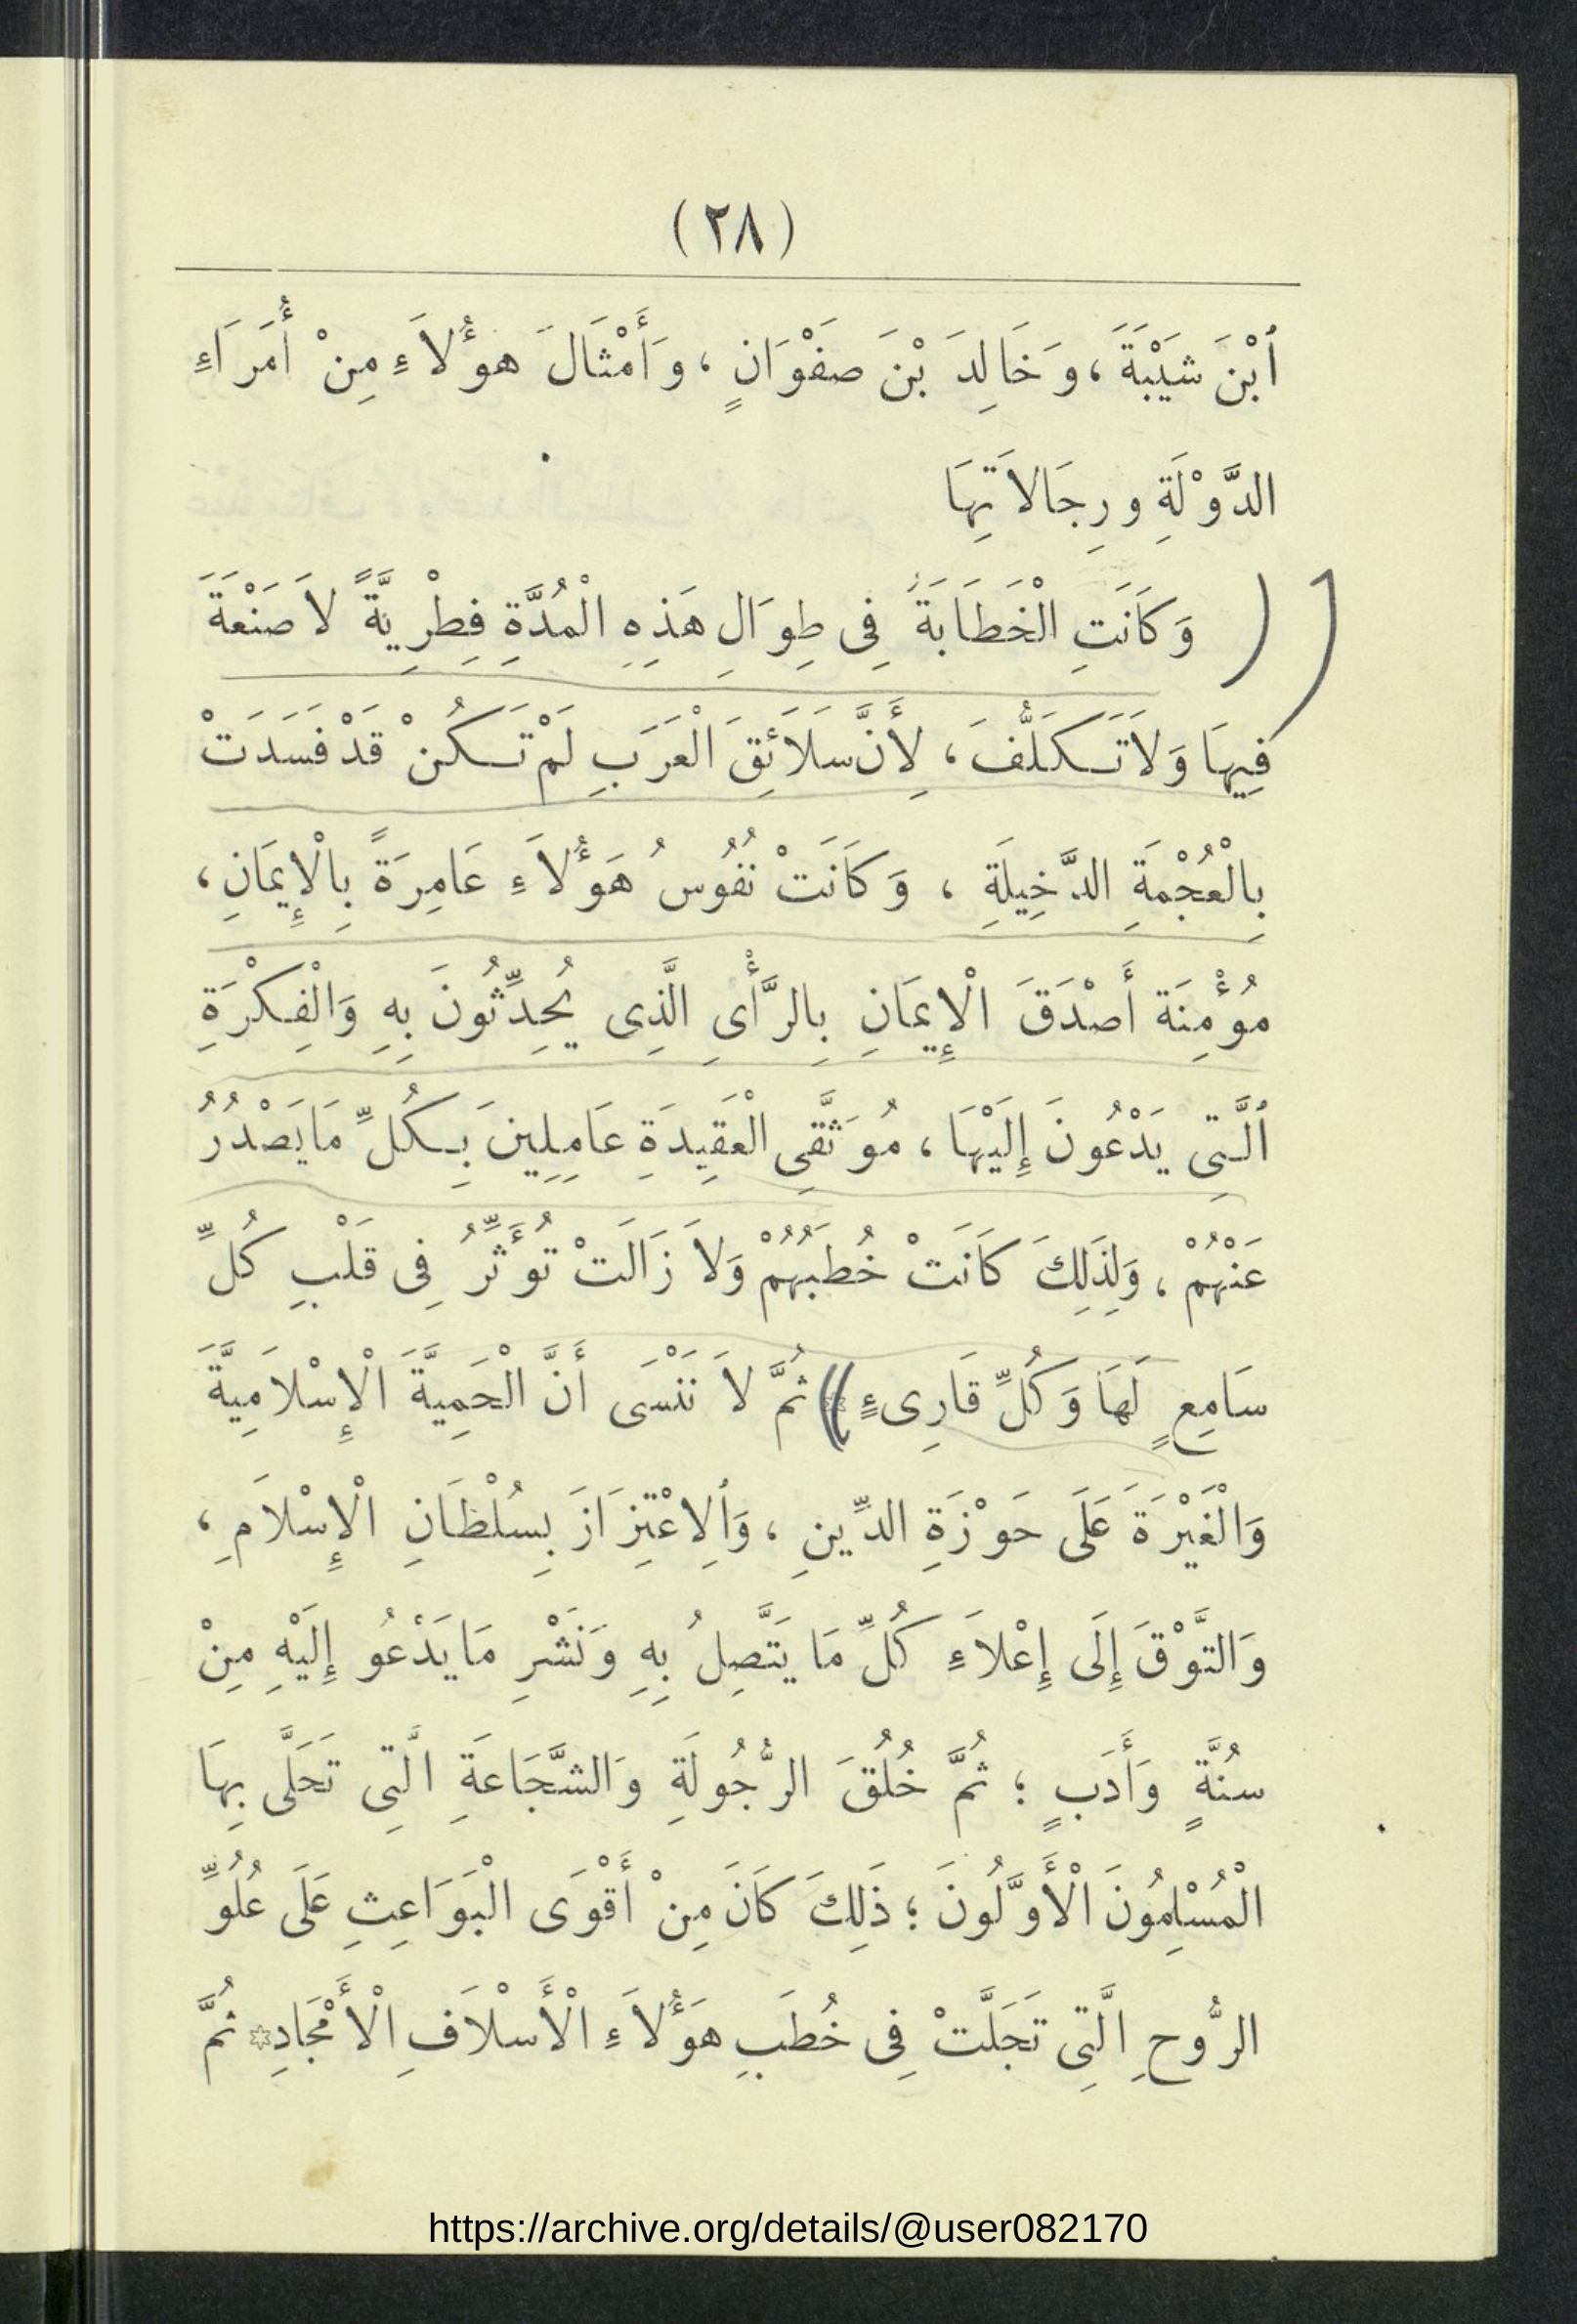 (٢٨)
ٱبْنَ شَيْبَةَ ، وَخَالِدَ بْنَ صَفْوَانٍ ، وَأَمْثَالَ هؤُلاَءِ مِنْ أُمَرَاءِ
الدَّوْلَةِ ورِجَالاَتِهَا
وَكَانَتِ الْخَطَابَةُ فِى طِوَالِ هَذِهِ الْمُدَّةِ فِطْرِيَّةً لاَ صَنْعَةَ
فِيهَا وَلاَ تَكَلُّفَ ، لِأَنَّ سَلاَئِقَ الْعَرَبِ لَمْ تَكُنْ قَدْ فَسَدَتْ
بِالْعُجْمَةِ الدَّخِيلَةِ ، وَكَانَتْ نُفُوسُ هَؤُلاَءِ عَامِرَةً بِالْإِيمَانِ ،
مُؤْمِنَة أَصْدَقَ الْإِيمَانِ بِالرَّأْىِ الَّذِى يُحِدِّثُونَ بِهِ وَالْفِكْرَةِ
ٱلَّتِى يَدْعُونَ إِلَيْهَا ، مُوَثَّقِى الْعَقِيدَةِ عَامِلِينَ بِكُلِّ مَا يَصْدُرُ
عَنْهُمْ ، وَلِذَلِكَ كَانَتْ خُطَبُهُمْ وَلاَ زَالَتْ تُؤَثِّرُ فِى قَلْبِ كُلِّ
سَامِعٍ لَهَا وَكُلِّ قَارِىءٍ ثُمَّ لاَ نَنْسَى أَنَّ الْحَمِيَّةَ الْإِسْلاَمِيَّةَ
وَالْغَيْرَةَ عَلَى حَوْزَةِ الدِّينِ ، وَٱلِاعْتِزَازَ بِسُلْطَانِ الْإِسْلاَمِ ،
وَالتَّوْقَ إِلَى إِعْلاَءِ كُلِّ مَا يَتَّصِلُ بِهِ وَنَشْرِ مَا يَدْعُو إِلَيْهِ مِنْ
سُنَّةٍ وَأَدَبٍ ؛ ثُمَّ خُلُقَ الرُّجُولَةِ وَالشَّجَاعَةِ الَّتِى تَحَلَّى بِهَا
الْمُسْلِمُونَ الْأَوَّلُونَ ؛ ذَلِكَ كَانَ مِنْ أَقْوَى الْبَوَاعِثِ عَلَى عُلُوِّ
الرُّوحِ الَّتِى تَجَلَّتْ فِى خُطَبِ هَؤُلاَءِ الْأَسْلاَفِ الْأَمْجَادِ * ثُمَّ
https://archive.org/details/@user082170